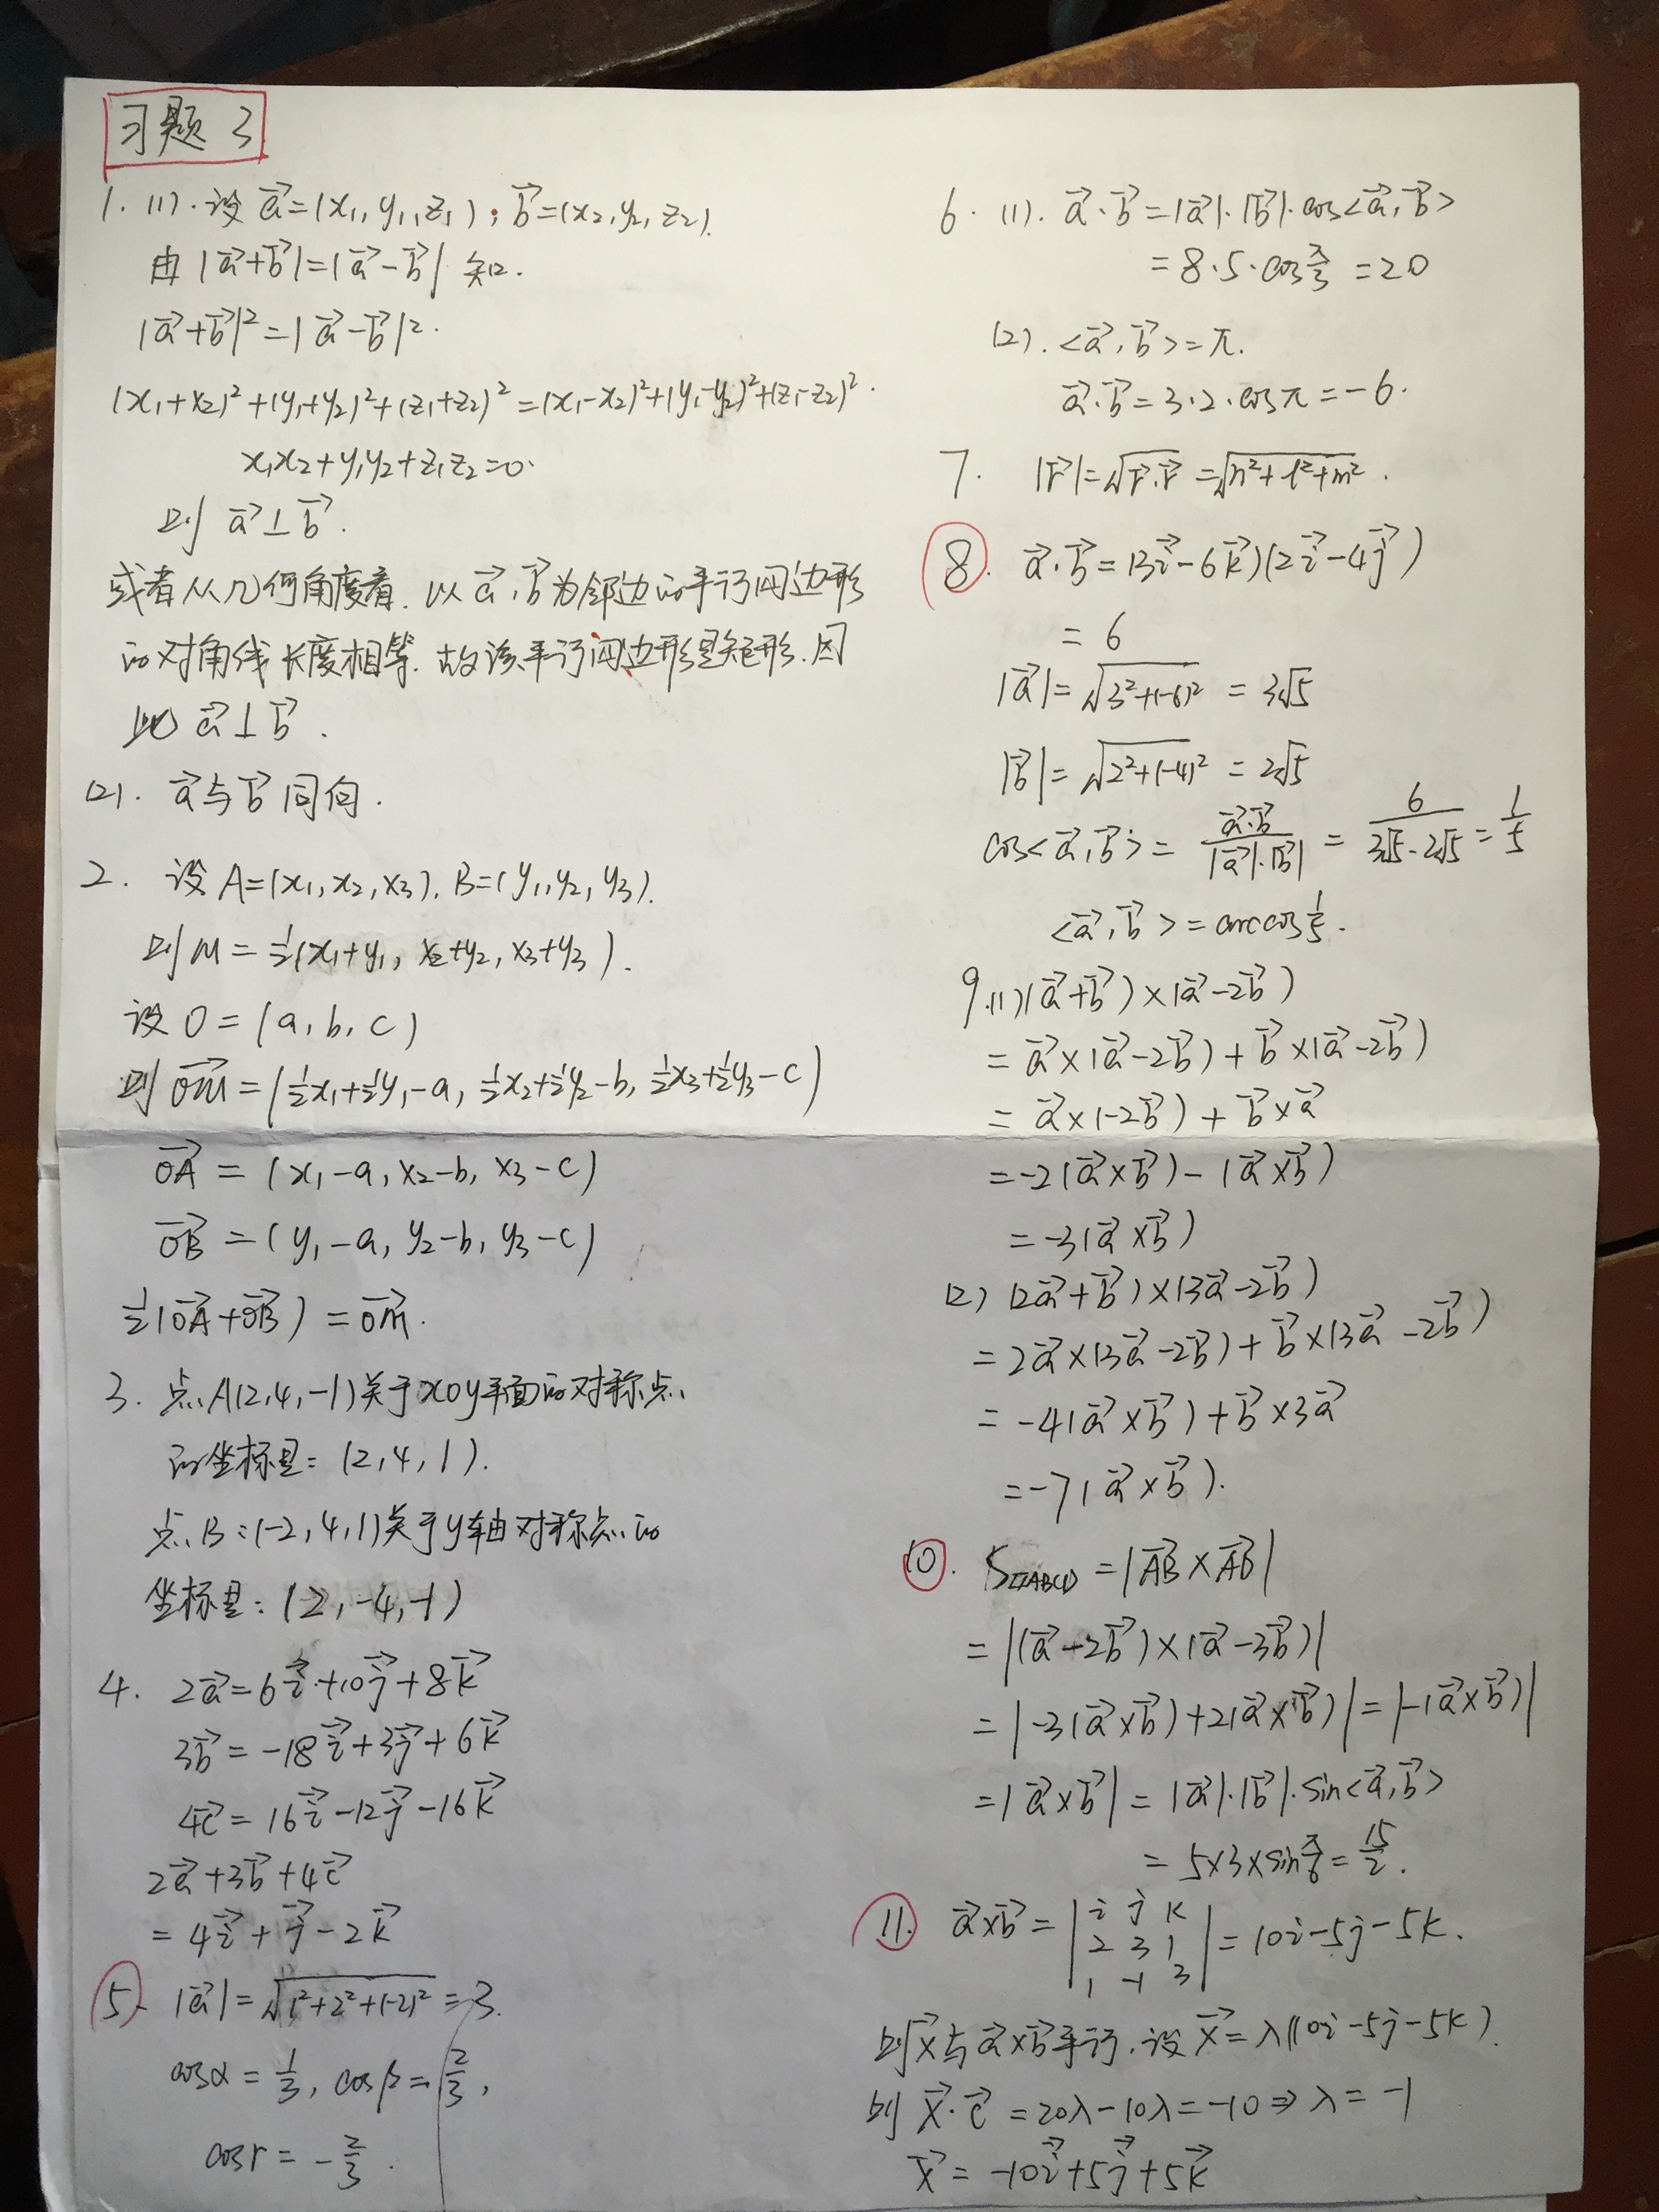 习题 3
1. (1). 设 \vec{a}=(x₁, y₁, z₁); \vec{b}=(x₂, y₂, z₂).
由 |\vec{a}+\vec{b}|=|\vec{a}-\vec{b}| 知.
|\vec{a}+\vec{b}|²=|\vec{a}-\vec{b}|².
(x₁+x₂)²+(y₁+y₂)²+(z₁+z₂)²=(x₁-x₂)²+(y₁-y₂)²+(z₁-z₂)².
x₁x₂+y₁y₂+z₁z₂=0.
则 \vec{a}⊥\vec{b}.
或者从几何角度看. 以 \vec{a}, \vec{b} 为邻边的平行四边形
的对角线长度相等. 故该平行四边形是矩形. 因
此 \vec{a}⊥\vec{b}.
(2). \vec{a}与\vec{b} 同向.
2. 设 A=(x₁, x₂, x₃). B=(y₁, y₂, y₃).
则 M=½(x₁+y₁, x₂+y₂, x₃+y₃).
设 O=(a, b, c)
则 \vec{OM}=(½x₁+½y₁-a, ½x₂+½y₂-b, ½x₃+½y₃-c)
\vec{OA}=(x₁-a, x₂-b, x₃-c)
\vec{OB}=(y₁-a, y₂-b, y₃-c)
½(\vec{OA}+\vec{OB})=\vec{OM}.
3. 点A(2,4,-1)关于xoy平面的对称点
的坐标是: (2,4,1).
点B:(-2,4,1)关于y轴对称点的
坐标是: (2,-4,-1)
4. 2\vec{a}=6\vec{i}+10\vec{j}+8\vec{k}
3\vec{b}=-18\vec{i}+3\vec{j}+6\vec{k}
4\vec{c}=16\vec{i}-12\vec{j}-16\vec{k}
2\vec{a}+3\vec{b}+4\vec{c}
=4\vec{i}+\vec{j}-2\vec{k}
5. |\vec{a}|=√(1²+2²+(-2)²)=3.
cosα=1/3, cosβ=2/3,
cosr=-2/3.
6. (1). \vec{a}·\vec{b}=|\vec{a}|·|\vec{b}|·cos<\vec{a},\vec{b}>
=8·5·cos π/3=20
(2). <\vec{a},\vec{b}>=π.
\vec{a}·\vec{b}=3·2·cosπ=-6.
7. |\vec{r}|=√(\vec{r}·\vec{r})=√(n²+l²+m²).
8. \vec{a}·\vec{b}=(3\vec{i}-6\vec{k})(2\vec{i}-4\vec{j})
=6
|\vec{a}|=√(3²+(-6)²)=3√5
|\vec{b}|=√(2²+(-4)²)=2√5
cos<\vec{a},\vec{b}>=\vec{a}·\vec{b}/(|\vec{a}|·|\vec{b}|)=6/(3√5·2√5)=1/5
<\vec{a},\vec{b}>=arccos 1/5.
9. (1)(\vec{a}+\vec{b})×(\vec{a}-2\vec{b})
=\vec{a}×(\vec{a}-2\vec{b})+\vec{b}×(\vec{a}-2\vec{b})
=\vec{a}×(-2\vec{b})+\vec{b}×\vec{a}
=-2(\vec{a}×\vec{b})-(\vec{a}×\vec{b})
=-3(\vec{a}×\vec{b})
(2) (2\vec{a}+\vec{b})×(3\vec{a}-2\vec{b})
=2\vec{a}×(3\vec{a}-2\vec{b})+\vec{b}×(3\vec{a}-2\vec{b})
=-4(\vec{a}×\vec{b})+\vec{b}×3\vec{a}
=-7(\vec{a}×\vec{b}).
10. S▱ABCD=|\vec{AB}×\vec{AD}|
=|(\vec{a}-2\vec{b})×(\vec{a}-3\vec{b})|
=|-3(\vec{a}×\vec{b})+2(\vec{a}×\vec{b})|=|-(\vec{a}×\vec{b})|
=|\vec{a}×\vec{b}|=|\vec{a}|·|\vec{b}|·sin<\vec{a},\vec{b}>
=5×3×sin π/6=15/2.
11. \vec{a}×\vec{b}=|i j k; 2 3 1; 1 -1 3|=10i-5j-5k.
则\vec{x}与\vec{a}×\vec{b}平行. 设 \vec{x}=λ(10i-5j-5k).
则 \vec{x}·\vec{c}=20λ-10λ=-10⇒λ=-1
\vec{x}=-10\vec{i}+5\vec{j}+5\vec{k}